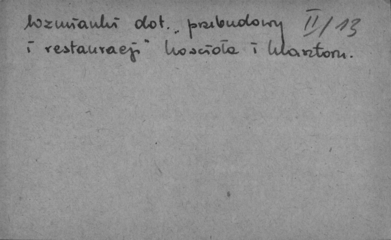 Wzmianki dot. „przebudowy II/13
i restauracji" kościoła i klasztoru.